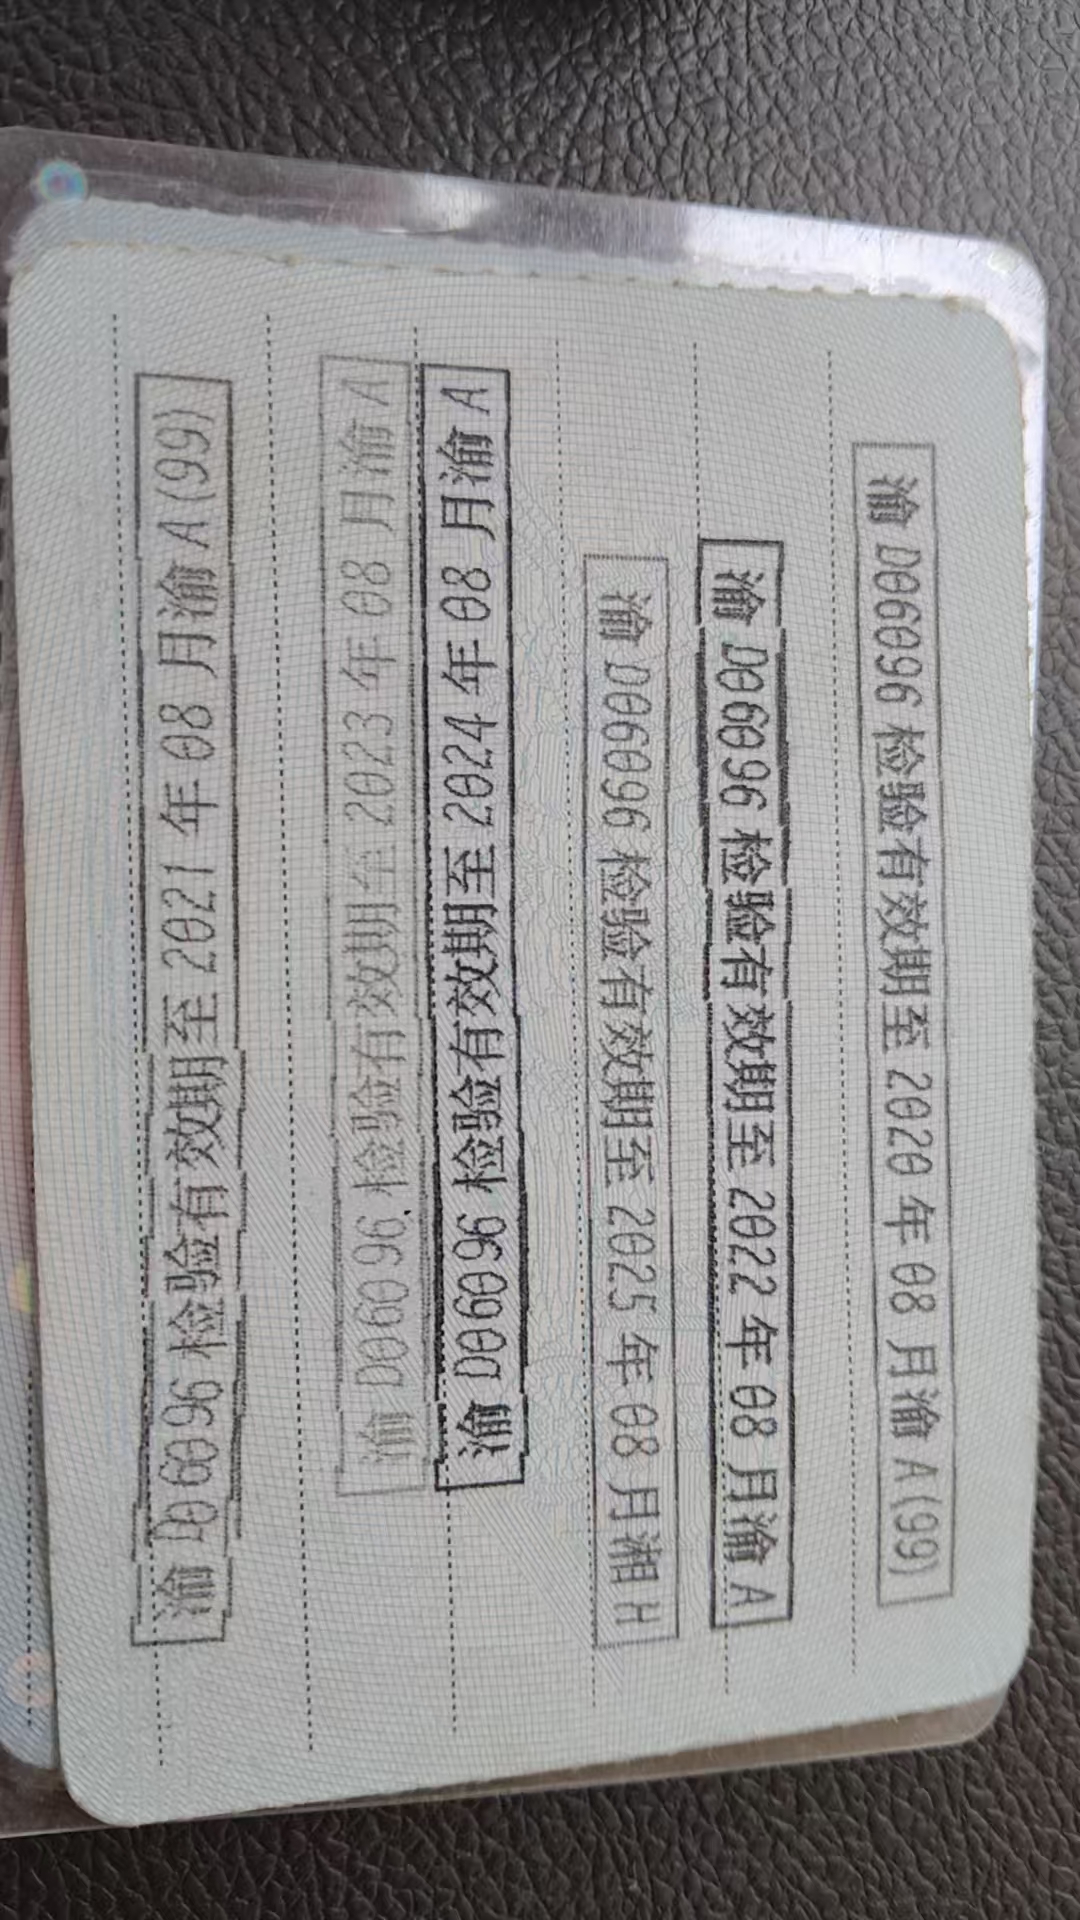 渝D06096检验有效期至2020年08月渝A(99)
渝D06096检验有效期至2022年08月渝A
渝D06096检验有效期至2025年08月湘H
渝D06096检验有效期至2024年08月渝A
渝D06096检验有效期至2023年08月渝A
渝D06096检验有效期至2021年08月渝A(99)